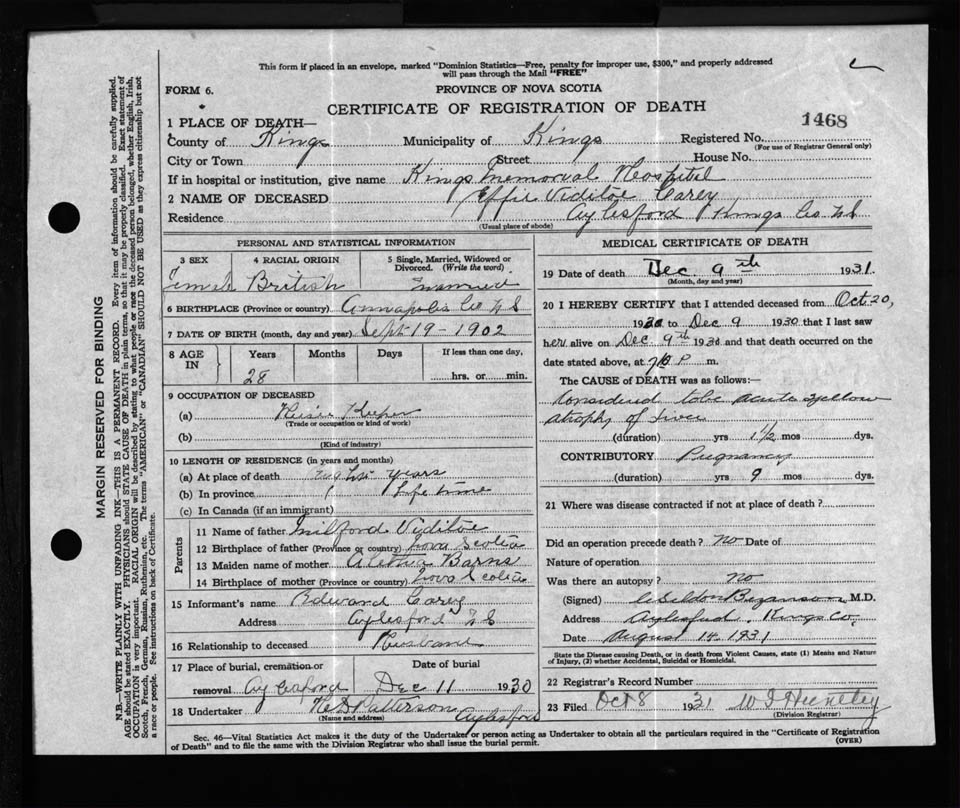 This form if placed in an envelope, marked "Dominion Statistics—Free, penalty for improper use, $300," and properly addressed
will pass through the Mail "FREE"
FORM 6.
PROVINCE OF NOVA SCOTIA
CERTIFICATE OF REGISTRATION OF DEATH
1468
1 PLACE OF DEATH—
County of Kings Municipality of Kings Registered No.
(For use of Registrar General only)
City or Town Street House No.
If in hospital or institution, give name Kings Memorial Hospital
2 NAME OF DECEASED Effie Viditoe Carey
Residence Aylesford Kings Co. N S
(Usual place of abode)
MARGIN RESERVED FOR BINDING
N.B.—WRITE PLAINLY WITH UNFADING INK—THIS IS A PERMANENT RECORD. Every item of information should be carefully supplied.
AGE should be stated EXACTLY. PHYSICIANS should STATE CAUSE OF DEATH in plain terms, so that it may be properly classified. Exact statement of
OCCUPATION is very important. RACIAL ORIGIN will be described by stating to what people or race the deceased person belonged, whether English, Irish,
Scotch, French, German, Russian, Ruthenian, etc. The terms "AMERICAN" or "CANADIAN" SHOULD NOT BE USED as they express citizenship but not
a race or people. See instructions on back of Certificate.
PERSONAL AND STATISTICAL INFORMATION
3 SEX 4 RACIAL ORIGIN 5 Single, Married, Widowed or
Divorced. (Write the word)
Female British Married
6 BIRTHPLACE (Province or country) Annapolis Co N S
7 DATE OF BIRTH (month, day and year) Sept-19-1902
8 AGE IN Years Months Days If less than one day,
28 hrs. or min.
9 OCCUPATION OF DECEASED
(a) House Keeper
(Trade or occupation or kind of work)
(b)
(Kind of industry)
10 LENGTH OF RESIDENCE (in years and months)
(a) At place of death years
(b) In province Life time
(c) In Canada (if an immigrant)
Parents
11 Name of father Milford Viditoe
12 Birthplace of father (Province or country) Nova Scotia
13 Maiden name of mother Barns
14 Birthplace of mother (Province or country) Nova Scotia
15 Informant's name Edward Carey
Address Aylesford N S
16 Relationship to deceased Husband
17 Place of burial, cremation or Date of burial
removal Aylesford Dec 11 1930
18 Undertaker Patterson Aylesford
(Name and address)
MEDICAL CERTIFICATE OF DEATH
19 Date of death Dec. 9th 1931
(Month, day and year)
20 I HEREBY CERTIFY that I attended deceased from Oct 20,
1930 to Dec 9 1930 that I last saw
her alive on Dec 9th 1930 and that death occurred on the
date stated above, at P m.
The CAUSE OF DEATH was as follows:—
Considered to be acute yellow
atrophy of liver
(duration) yrs 1½ mos dys.
CONTRIBUTORY Pregnancy
(duration) yrs 9 mos dys.
21 Where was disease contracted if not at place of death?
Did an operation precede death? No Date of
Nature of operation
Was there an autopsy? no
(Signed) Bezanson M.D.
Address Aylesford. Kings Co.
Date August 14. 1931
State the Disease causing Death, or in death from Violent Causes, state (1) Means and Nature
of Injury, (2) whether Accidental, Suicidal or Homicidal.
22 Registrar's Record Number
23 Filed Oct 8 1931
(Division Registrar)
Sec. 46—Vital Statistics Act makes it the duty of the Undertaker or person acting as Undertaker to obtain all the particulars required in the "Certificate of Registration
of Death" and to file the same with the Division Registrar who shall issue the burial permit.
(OVER)